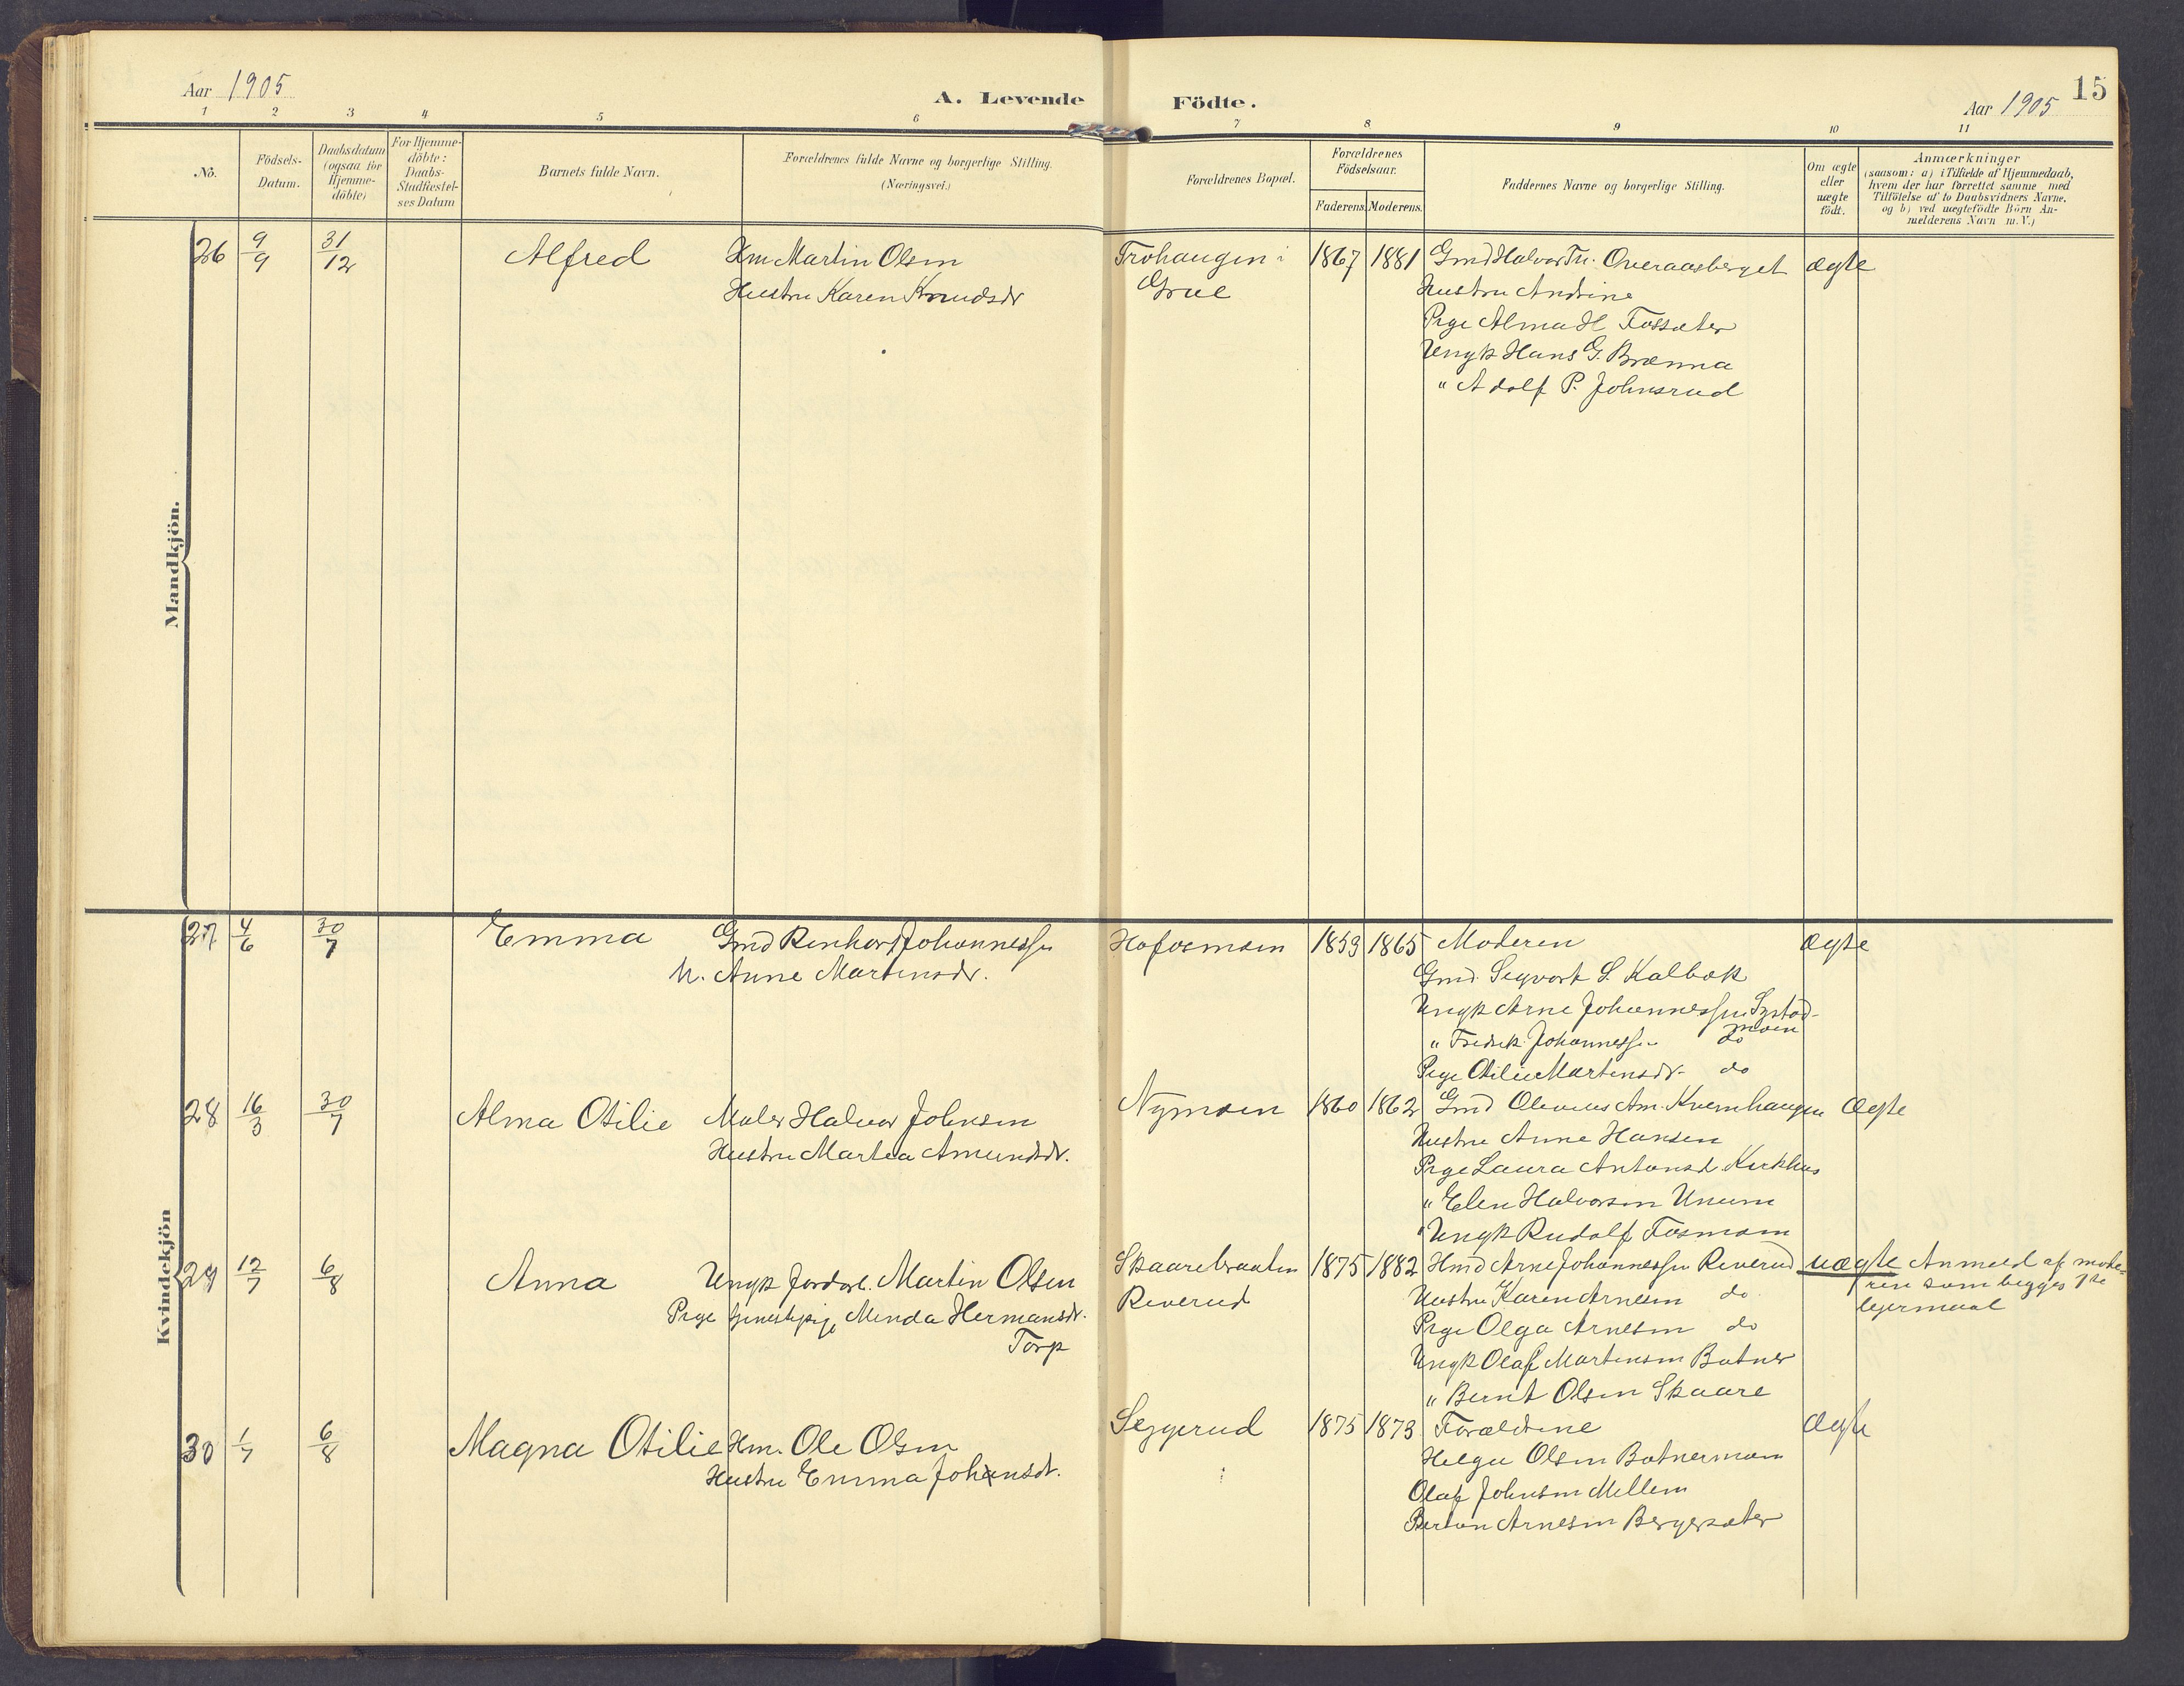 Aar 1905
A. Levende Födte.
Aar 1905
15
1 2 3 4 5 6 7 8 9 10 11
No.
Födsels-
Datum.
Daabsdatum
(ogsaa for
Hjemme-
döbte)
For Hjemme-
döbte:
Daabs-
Stadfæstel-
ses Datum
Barnets fulde Navn.
Forældrenes fulde Navne og borgerlige Stilling.
(Næringsvei.)
Forældrenes Bopæl.
Forældrenes
Födselsaar.
Faderens. Moderens.
Faddernes Navne og borgerlige Stilling.
Om ægte
eller
uægte
födt.
Anmærkninger
(saasom: a) i Tilfælde af Hjemmedaab,
hvem der har forrettet samme med
Tilföielse af to Daabsvidners Navne.
og b) ved uægtefödte Börn An-
melderens Navn m. V.)
Mandkjön.
26 9/9 31/12 Alfred Hm Martin Olsen Trohaugen i 1867 1881 Gmd Halvor Tr. Overaasberget ægte
Hustru Karen Knudsdr Grue Hustru Andrine
Pige Alma H Fossæter
Ungk Hans G. Brænna
" Adolf P. Johnsrud
Kvindekjön
27 4/6 30/7 Emma Gmd Renhart Johannessen Hofosmoen 1859 1865 Moderen ægte
h. Anne Martinsdr. Gmd. Segvart S. Kalbæk
Ungk Arne Johannessen Systad-
moen
" Fredrik Johannessen do
Pige Otilie Martinsdr. do
28 16/3 30/7 Alma Otilie Maler Halvor Johnsen Nymoen 1860 1862 Gmd Olevius Am. Kvernhaugen Ægte
Hustru Martea Amundsdr. Hustru Anne Hansen
Pige Laura Antonsd. Kirkhus
" Elen Halvorsen Unum
" Ungk Rudolf Fosmoen
29 12/7 6/8 Anna Ungk Jordarb. Martin Olsen Skaarebraaten 1875 1882 Hmd Arne Johannessen Reverud uægte Anmeld af mode-
Pige tjenestepige Minda Hermansdr. Reverud Hustru Karen Arnesen do ren som begges 1ste
Torp Pige Olga Arnesen do lejermaal
Ungk Olaf Martinsen Botner
" Bernt Olsen Skaare
30 1/7 6/8 Magna Otilie Hm. Ole Olsen Seggerud 1875 1873 Forældrene Ægte
Hustru Emma Johansdr. Helge Olsen Botnermoen
Olaf Johnsen Mellem
Berton Arnesen Bergersæter